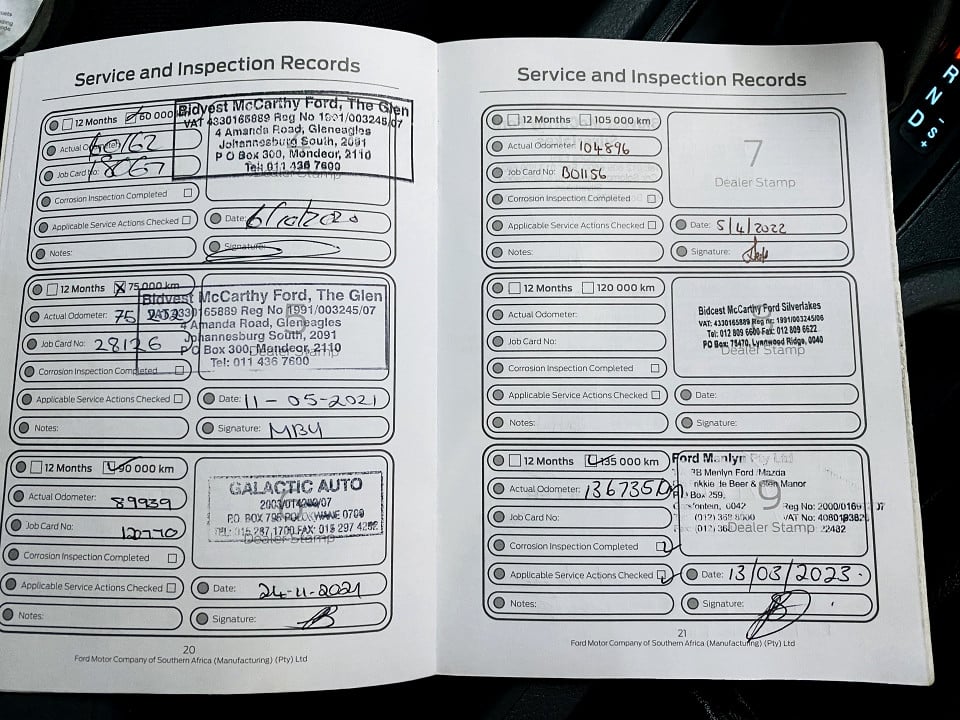 Service and Inspection Records
12 Months 60 000 km
Bidvest McCarthy Ford, The Glen
VAT 4330165889 Reg No 1991/003245/07
4 Amanda Road, Gleneagles
Johannesburg South, 2091
P O Box 300, Mondeor, 2110
Tel: 011 436 7600
Actual Odometer: 60162
Job Card No: 18067
Corrosion Inspection Completed
Applicable Service Actions Checked
Date: 6/10/2020
Notes:
Signature:
12 Months 75 000 km
Bidvest McCarthy Ford, The Glen
VAT 4330165889 Reg No 1991/003245/07
4 Amanda Road, Gleneagles
Johannesburg South, 2091
P O Box 300, Mondeor, 2110
Tel: 011 436 7600
5
Dealer Stamp
Actual Odometer: 75 202
Job Card No: 28126
Corrosion Inspection Completed
Applicable Service Actions Checked
Date: 11-05-2021
Notes:
Signature: MBY
12 Months 90 000 km
GALACTIC AUTO
P.O. BOX 795 POLOKWANE 0700
TEL: 015 297 1700 FAX: 015 297 4252
Dealer Stamp
Actual Odometer: 89939
Job Card No: 120770
Corrosion Inspection Completed
Applicable Service Actions Checked
Date: 24-11-2021
Notes:
Signature:
20
Ford Motor Company of Southern Africa (Manufacturing) (Pty) Ltd
Service and Inspection Records
12 Months 105 000 km
Actual Odometer: 104896
Job Card No: B01156
Corrosion Inspection Completed
7
Dealer Stamp
Applicable Service Actions Checked
Date: 5/4/2022
Notes:
Signature:
12 Months 120 000 km
Actual Odometer:
Job Card No:
Corrosion Inspection Completed
Bidcest McCarthy Ford Silverlakes
VAT: 4330165889 Reg nr: 1991/003245/06
Tel: 012 809 6600 Fax: 012 809 6622
PO Box: 75470, Lynnwood Ridge, 0040
Dealer Stamp
Applicable Service Actions Checked
Date:
Notes:
Signature:
12 Months 135 000 km
Actual Odometer: 136735km
Job Card No:
Corrosion Inspection Completed
Ford Menlyn Pty Ltd
Menlyn Ford /Mazda
de Beer & Glen Manor
Box 259,
0042
(012) 368
9
Dealer Stamp
Applicable Service Actions Checked
Date: 13/03/2023
Notes:
Signature:
21
Ford Motor Company of Southern Africa (Manufacturing) (Pty) Ltd
R
N
D
S
+
-